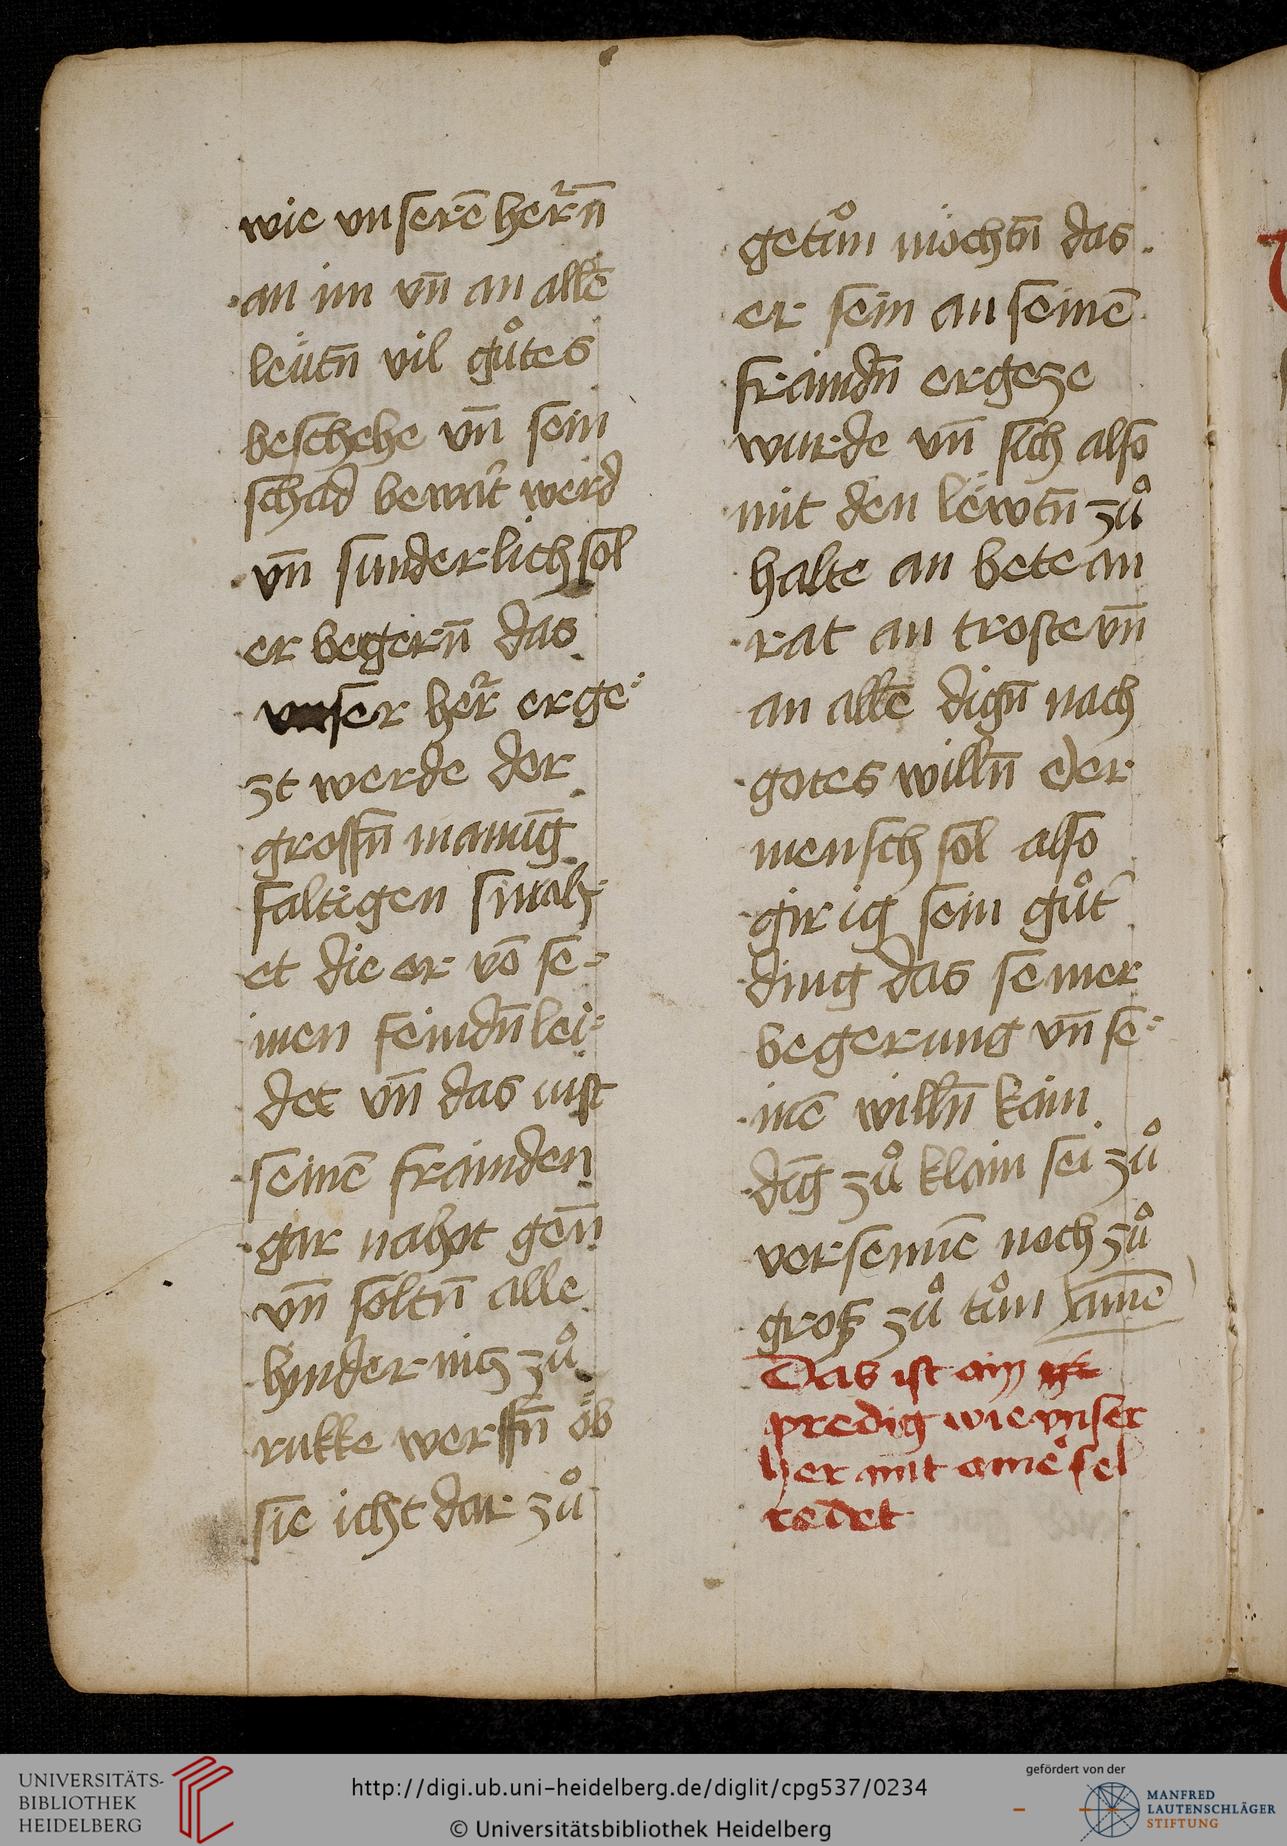 wie vnserē her̃n
an im vn̄ an allē
leütn̄ vil gůtes
beschehe vn̄ sein
schad bewart werd
vn̄ sunderlich sol
er begern̄ das
vnser her̃ erge⸗
zt werde der
grossn̄ manīg
faltigen smah⸗
et die er võ se⸗
inen feindn̄ lei⸗
det vn̄ das mist
seinē frainden
gar nahet gen̄
vn̄ soltn̄ alle
hinder nig zů
rukke werffn̄ ob
sie icht dar zů
getůn möchtn̄ das
er sein an seinē
fraindn̄ ergeze
wurde vn̄ sich also
mit den lëwtn̄ zů
halte an bete an
rat an troste vn̄
an allē dign̄ nach
gotes willn̄ Der
mensch sol also
girig sein gůt
ding das seiner
begerung vn̄ se⸗
inē willn̄ kain
dīg zů klain sei zů
versemnē noch zů
groß zů tůn amē
Das ist ain
predig wie vnser
her mit aine sel
redet
UNIVERSITÄTS-
BIBLIOTHEK
HEIDELBERG
http://digi.ub.uni-heidelberg.de/diglit/cpg537/0234
© Universitätsbibliothek Heidelberg
gefördert von der
MANFRED
LAUTENSCHLÄGER
STIFTUNG